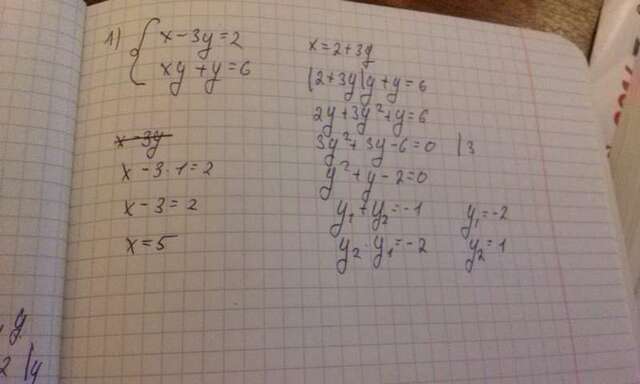 1) { x-3y=2
xy+y=6
x-3y
x-3·1=2
x-3=2
x=5
x=2+3y
(2+3y)y+y=6
2y+3y²+y=6
3y²+3y-6=0 |3
y²+y-2=0
y₁+y₂=-1 y₁=-2
y₂·y₁=-2 y₂=1
y
2 |y